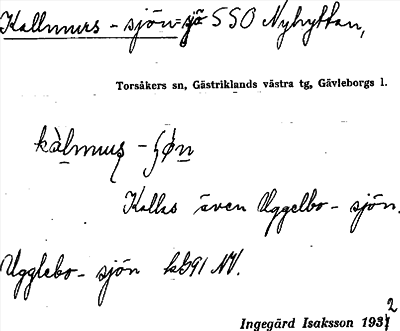 Kallmurs - sjön = sjö SSO Nyhyttan,
Torsåkers sn, Gästriklands västra tg, Gävleborgs l.
kàlmuʂ - ʂøn
Kallas även Uggelbo - sjön.
Ugglebo - sjön kb 91 NV.
Ingegärd Isaksson 1932